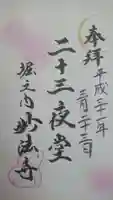 奉拝 平成二十一年
三月二十三日
二十三夜堂
堀之内妙法寺